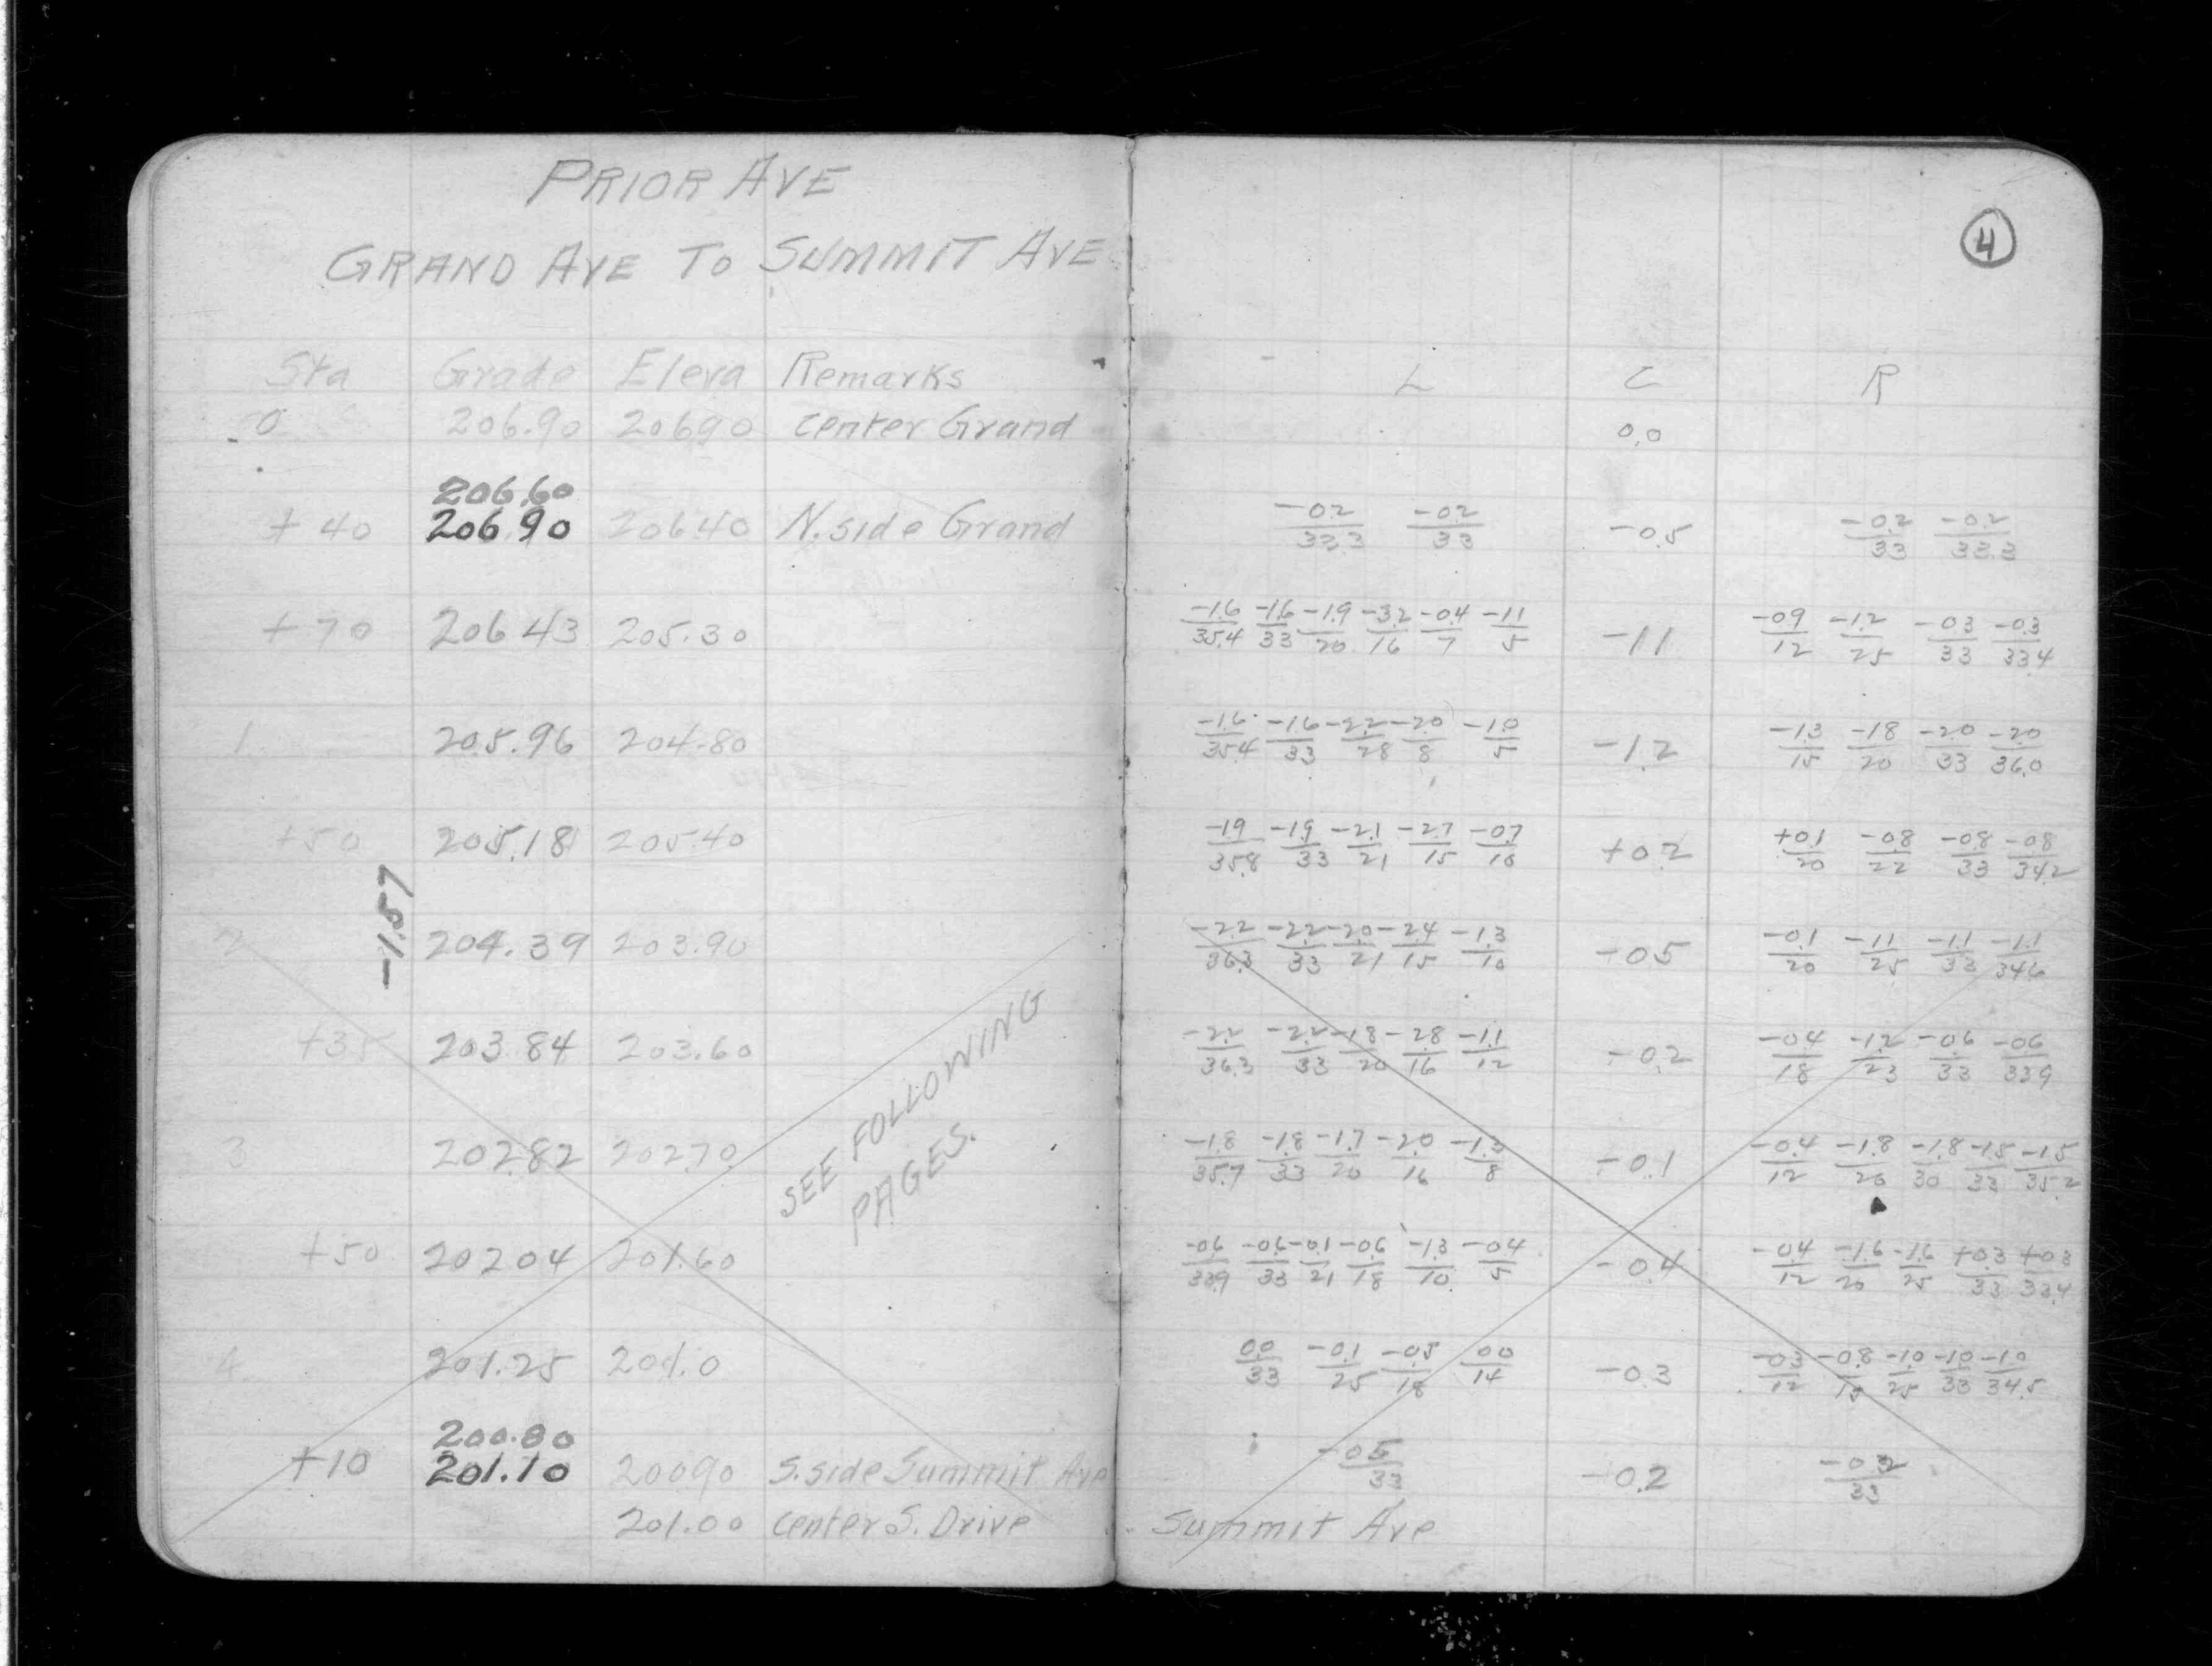 PRIOR AVE
GRAND AVE TO SUMMIT AVE
4
Sta Grade Eleva Remarks L C R
0 206.90 206.90 center Grand 0.0
206.60
+40 206.90 206.40 N. side Grand -0.2/33.3 -0.2/33 -0.5 -0.2/33 -0.2/33.3
+70 206.43 205.30 -1.6/35.4 -1.6/33 -1.9/20 -3.2/16 -0.4/7 -1.1/5 -1.1 -0.9/12 -1.2/25 -0.3/33 -0.3/33.4
1 205.96 204.80 -1.6/35.4 -1.6/33 -2.2/28 -2.0/8 -1.0/5 -1.2 -1.3/15 -1.8/20 -2.0/33 -2.0/36.0
+50 205.18 205.40 -1.9/35.8 -1.9/33 -2.1/21 -2.7/15 -0.7/10 +0.2 +0.1/20 -0.8/22 -0.8/33 -0.8/34.2
-1.57
2 204.39 203.90 -2.2/36.3 -2.2/33 -2.0/21 -2.4/15 -1.3/10 -0.5 -0.1/20 -1.1/25 -1.1/33 -1.1/34.6
+35 203.84 203.60 -2.2/36.3 -2.2/33 -1.8/20 -2.8/16 -1.1/12 -0.2 -0.4/18 -1.2/23 -0.6/33 -0.6/33.9
3 202.82 202.70 -1.8/35.7 -1.8/33 -1.7/20 -2.0/16 -1.3/8 -0.1 -0.4/12 -1.8/20 -1.8/30 -1.5/33 -1.5/35.2
SEE FOLLOWING
PAGES.
+50 202.04 201.60 -0.6/33.9 -0.6/33 -0.1/21 -0.6/18 -1.3/10 -0.4/5 -0.4 -0.4/12 -1.6/20 -1.6/25 +0.3/33 +0.3/33.4
4 201.25 201.0 0.0/33 -0.1/25 -0.5/18 0.0/14 -0.3 -0.3/12 -0.8/15 -1.0/25 -1.0/33 -1.0/34.5
200.80
+10 201.10 200.90 S. side Summit Ave -0.5/33 -0.2 -0.2/33
201.00 center S. Drive Summit Ave